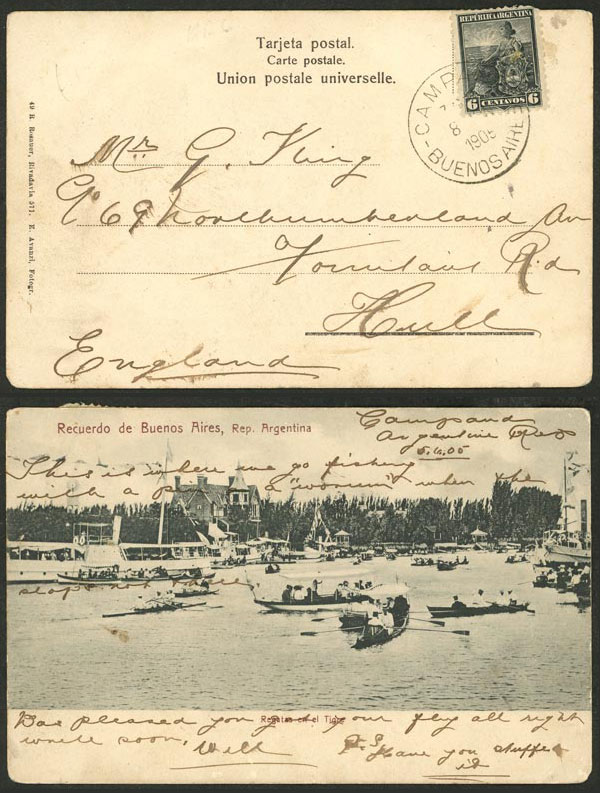 Tarjeta postal.
Carte postale.
Union postale universelle.
REPÚBLICA ARGENTINA
6 CENTAVOS 6
CAMPA
8
1905
BUENOS AIRE
49 R. Rosauer, Rivadavia 571. E. Avanzi, Fotogr.
Mr G. King
69 Northumberland Av
Rd
Hull
England
Recuerdo de Buenos Aires, Rep. Argentina
Campana
Argentine Rep
05
This is where we go fishing
with a a "worrum" when the
slops not
Regatas en el Tigre
Was pleased you got your fly all right
write soon, Will
P.S. Have you stuffed
it